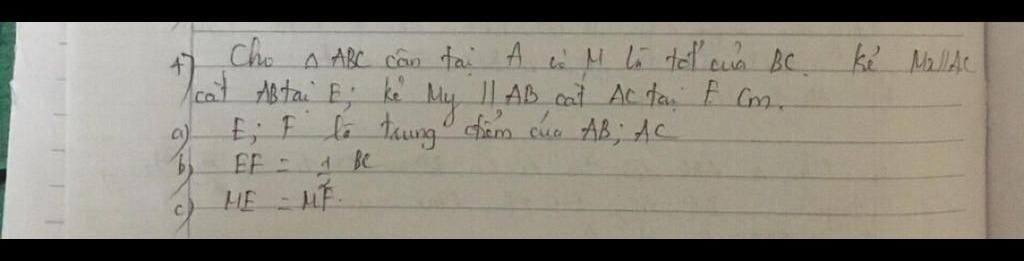 4) Cho Δ ABC cân tại A có M là tđ của BC. Kẻ Mx//AC
cắt AB tại E; kẻ My // AB cắt AC tại F Cm.
a) E; F là trung điểm của AB; AC
b) EF = 1/2 BC
c) ME = MF.